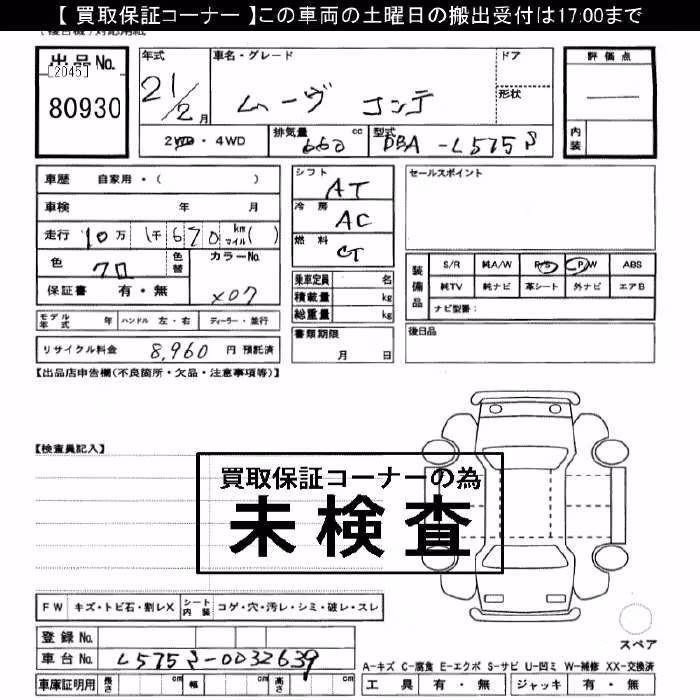 【 買取保証コーナー 】この車両の土曜日の搬出受付は17:00まで
出品No.
[2045]
80930
年式
21/2月
車名・グレード
ムーヴ コンテ
ドア
形状
評価点
内装
2WD・4WD
排気量 660 cc
型式 DBA -L575S
車歴 自家用・( )
車検 年 月
走行 10万 1千 670 km マイル( )
色 クロ
色替
カラーNo.
X07
保証書 有・無
モデル年式 年 ハンドル 左・右 ディーラー・並行
リサイクル料金 8,960 円 預託済
シフト AT
冷房 AC
燃料
乗車定員 名
積載量 kg
総重量 kg
書類期限
月 日
セールスポイント
装備品
S/R 純A/W P/S P/W ABS
純TV 純ナビ 革シート 外ナビ エアB
ナビ型番:
後日品
【出品店申告欄(不良箇所・欠品・注意事項等)】
【検査員記入】
買取保証コーナーの為
未検査
FW キズ・トビ石・割レX シート内装 コゲ・穴・汚レ・シミ・破レ・スレ
登録No.
車台No. L575S-0032639
車庫証明用 長さ cm 幅 cm 高さ cm
スペア
A-キズ C-腐食 E-エクボ S-サビ U-凹ミ W-補修 XX-交換済
工具 有・無 ジャッキ 有・無